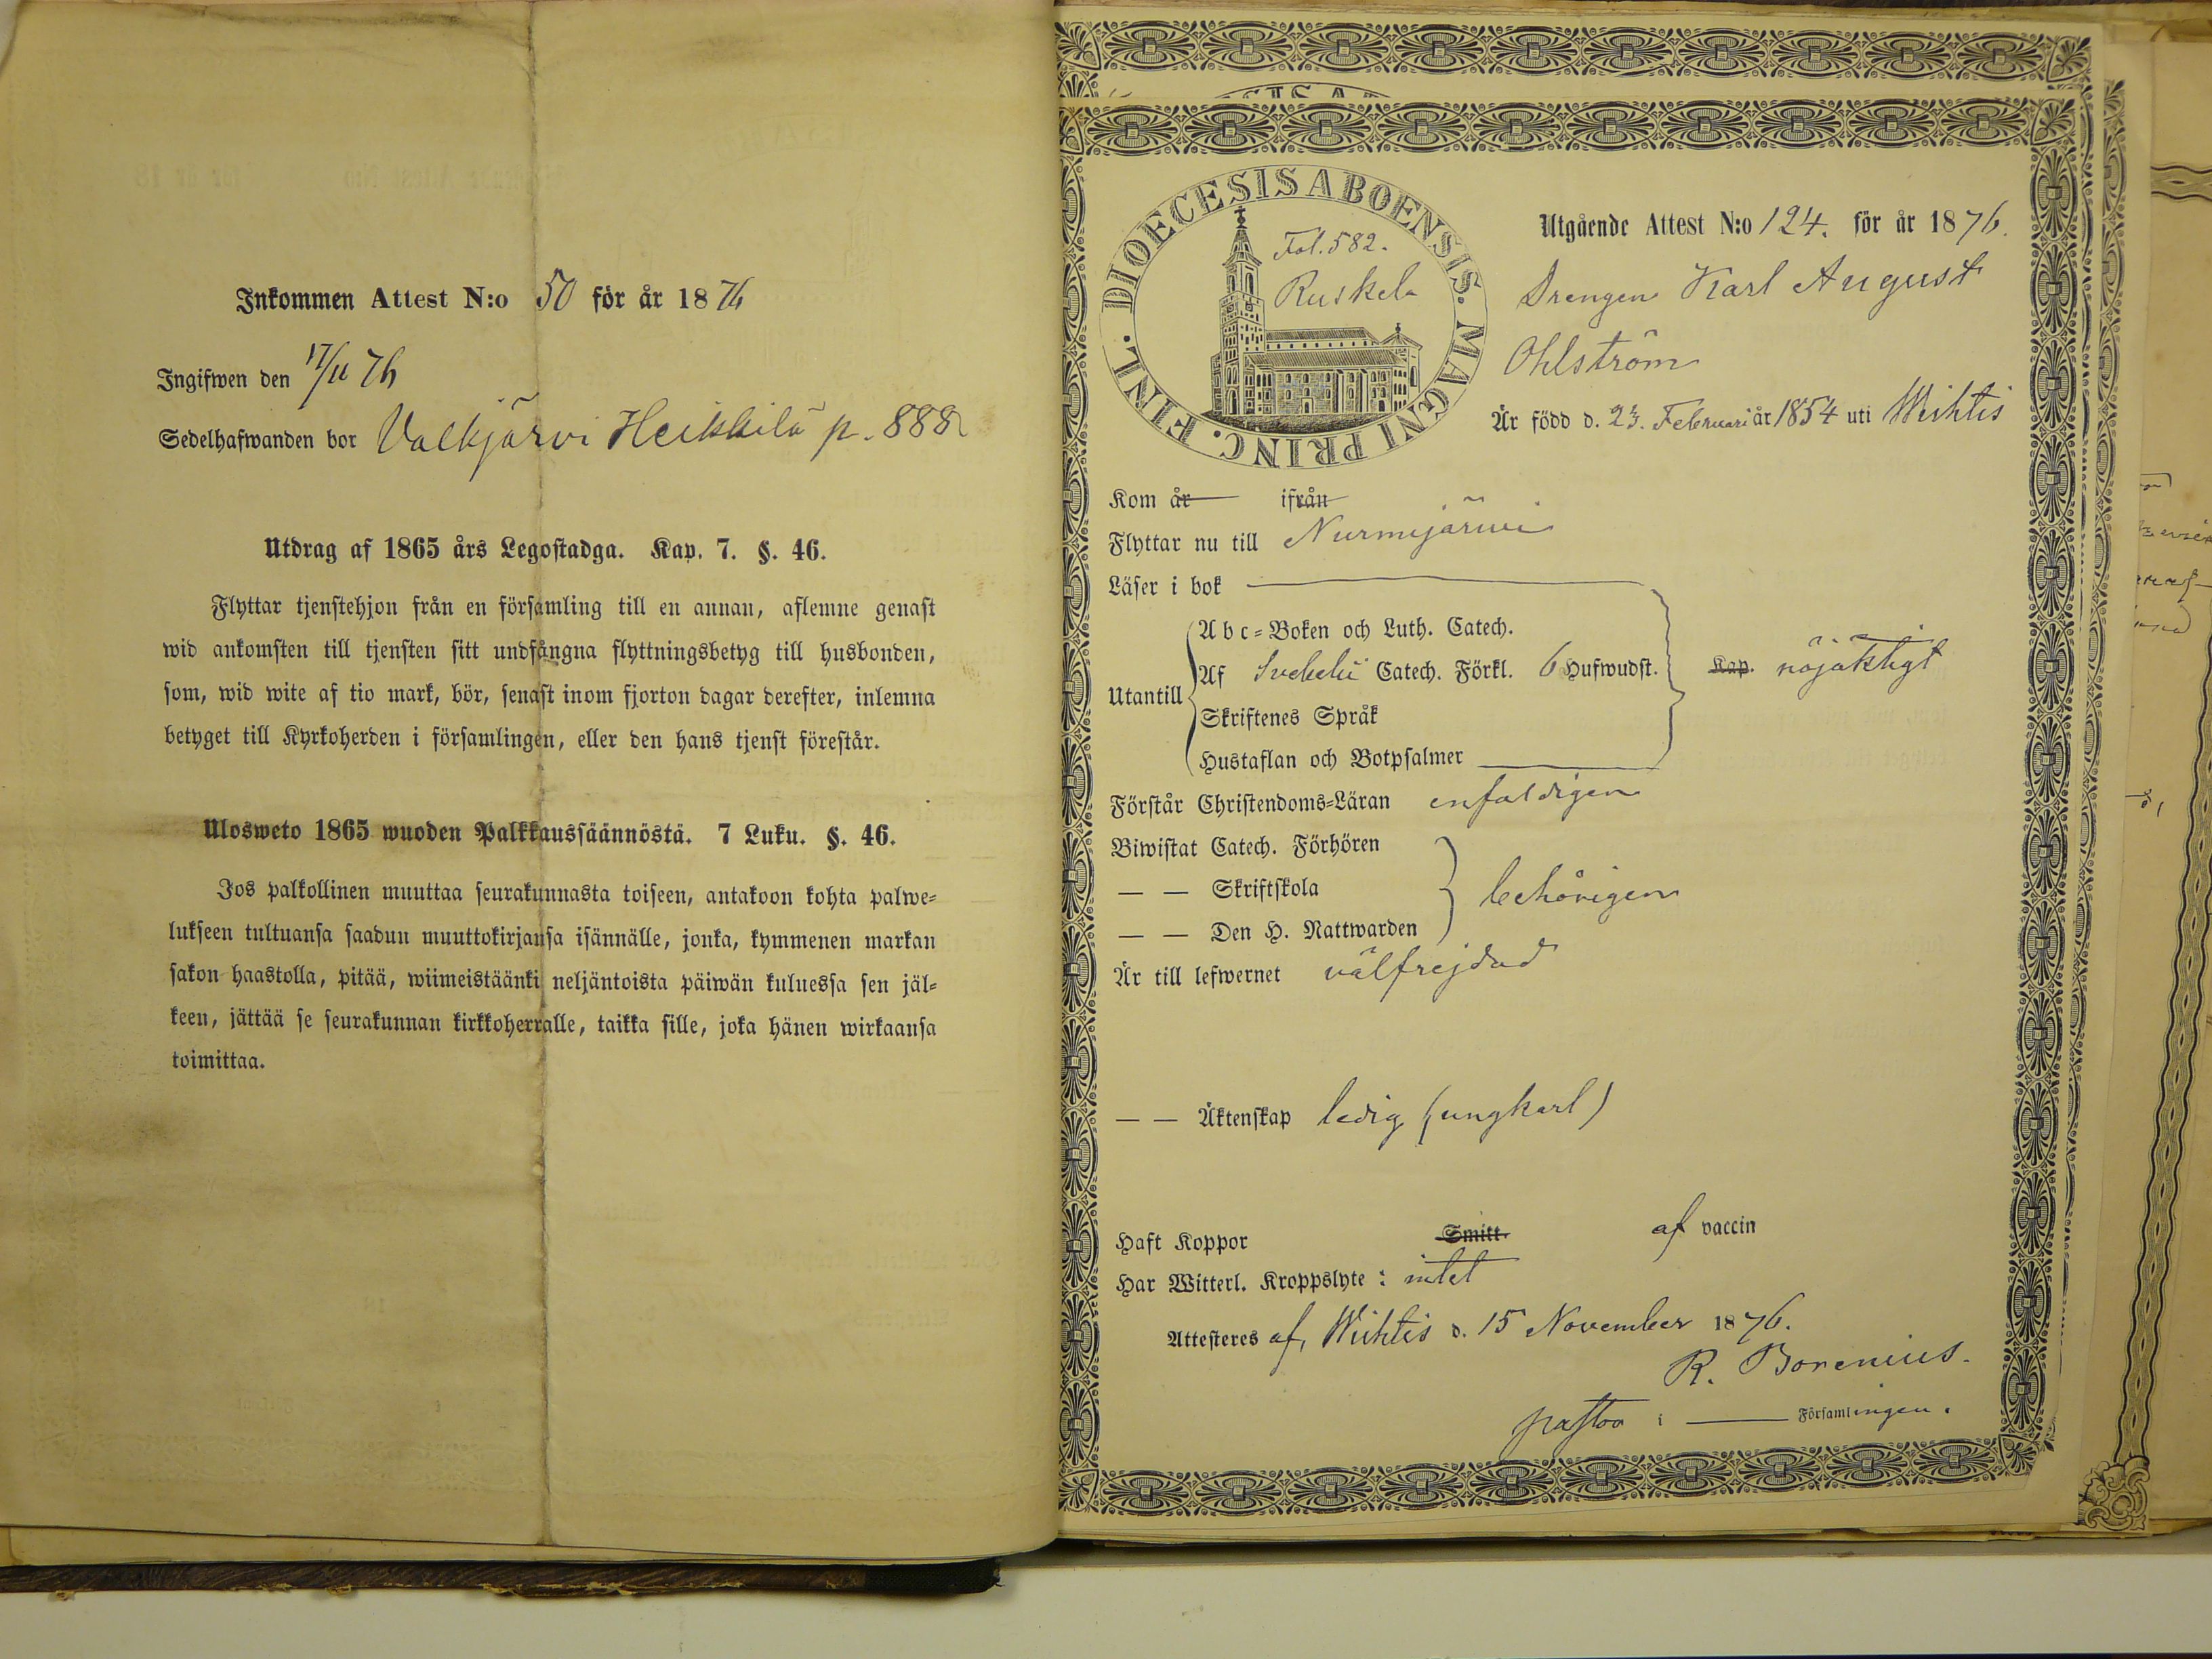 Inkommen Attest N:o 50 för år 1876
Ingifwen den 17/11 76
Sedelhafwanden bor Valkjärvi Heikkilä p. 888
Utdrag af 1865 års Legostadga. Kap. 7. §. 46.
Flyttar tjenstehjon från en församling till en annan, aflemne genast
wid ankomsten till tjensten sitt undfångna flyttningsbetyg till husbonden,
som, wid wite af tio mark, bör, senast inom fjorton dagar derefter, inlemna
betyget till Kyrkoherden i församlingen, eller den hans tjenst förestår.
Ulosweto 1865 wuoden Palkkaussäännöstä. 7 Luku. §. 46.
Jos palkollinen muuttaa seurakunnasta toiseen, antakoon kohta palwe=
lukseen tultuansa saadun muuttokirjansa isännälle, jonka, kymmenen markan
sakon haastolla, pitää, wiimeistäänki neljäntoista päiwän kuluessa sen jäl=
keen, jättää se seurakunnan kirkkoherralle, taikka sille, joka hänen wirkaansa
toimittaa.
DIOECESIS ABOENSIS. MAGNI PRINC. FINL.
Fol. 582.
Ruskela
Utgående Attest N:o 124. för år 1876.
Drengen Karl August
Ohlström
Är född d. 23. Februari år 1854 uti Wihtis
Kom år ifrån
Flyttar nu till Nurmijärwi
Läser i bok
Utantill
Abc=Boken och Luth. Catech.
Af Svebelii Catech. Förkl. 6 Hufwudst. Kap. nöjaktigt
Skriftenes Språk
Hustaflan och Botpsalmer
Förstår Christendoms=Läran enfaldigen
Biwistat Catech. Förhören
— — Skriftskola behörigen
— — Den H. Nattwarden
Är till lefwernet välfrejdad
— — Äktenskap ledig (ungkarl)
Haft Koppor Smitt af vaccin
Har Witterl. Kroppslyte : intet
Attesteres af, Wihtis d. 15 November 1876.
R. Borenius.
pastor i — Församlingen.